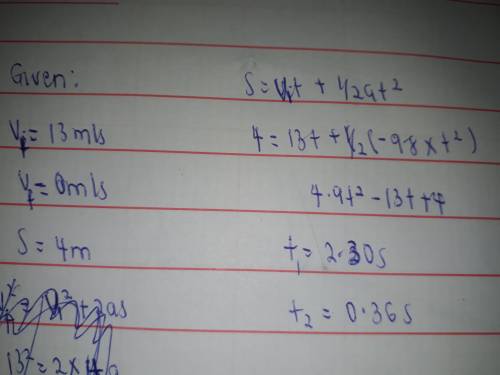 Given:
Vi = 13 m/s
Vf = 0m/s
S = 4m
13² = 2 x 4a
S = Vit + 1/2at²
4 = 13t + 1/2(-9.8 x t²)
4.9t² - 13t + 4
t₁ = 2.30s
t₂ = 0.36s